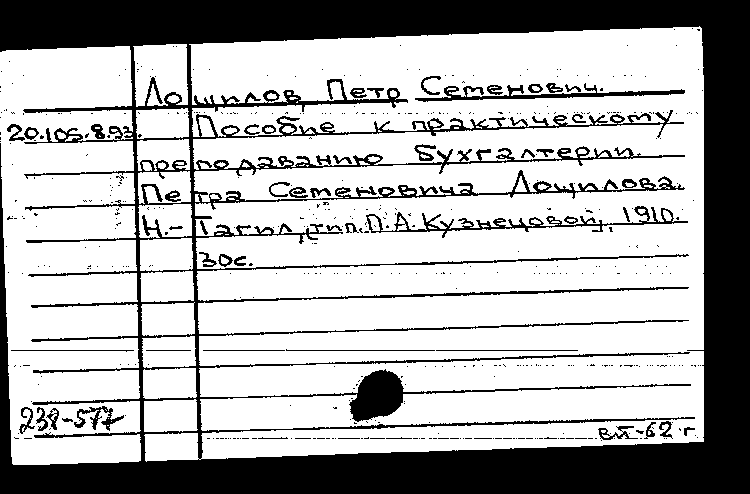 Лощилов, Петр Семенович.
20.105.8.93. Пособие к практическому
преподаванию бухгалтерии.
Петра Семеновича Лощилова.
Н.-Тагил, тип. П.А. Кузнецовой, 1910.
30с.
238-577
вт-62 г